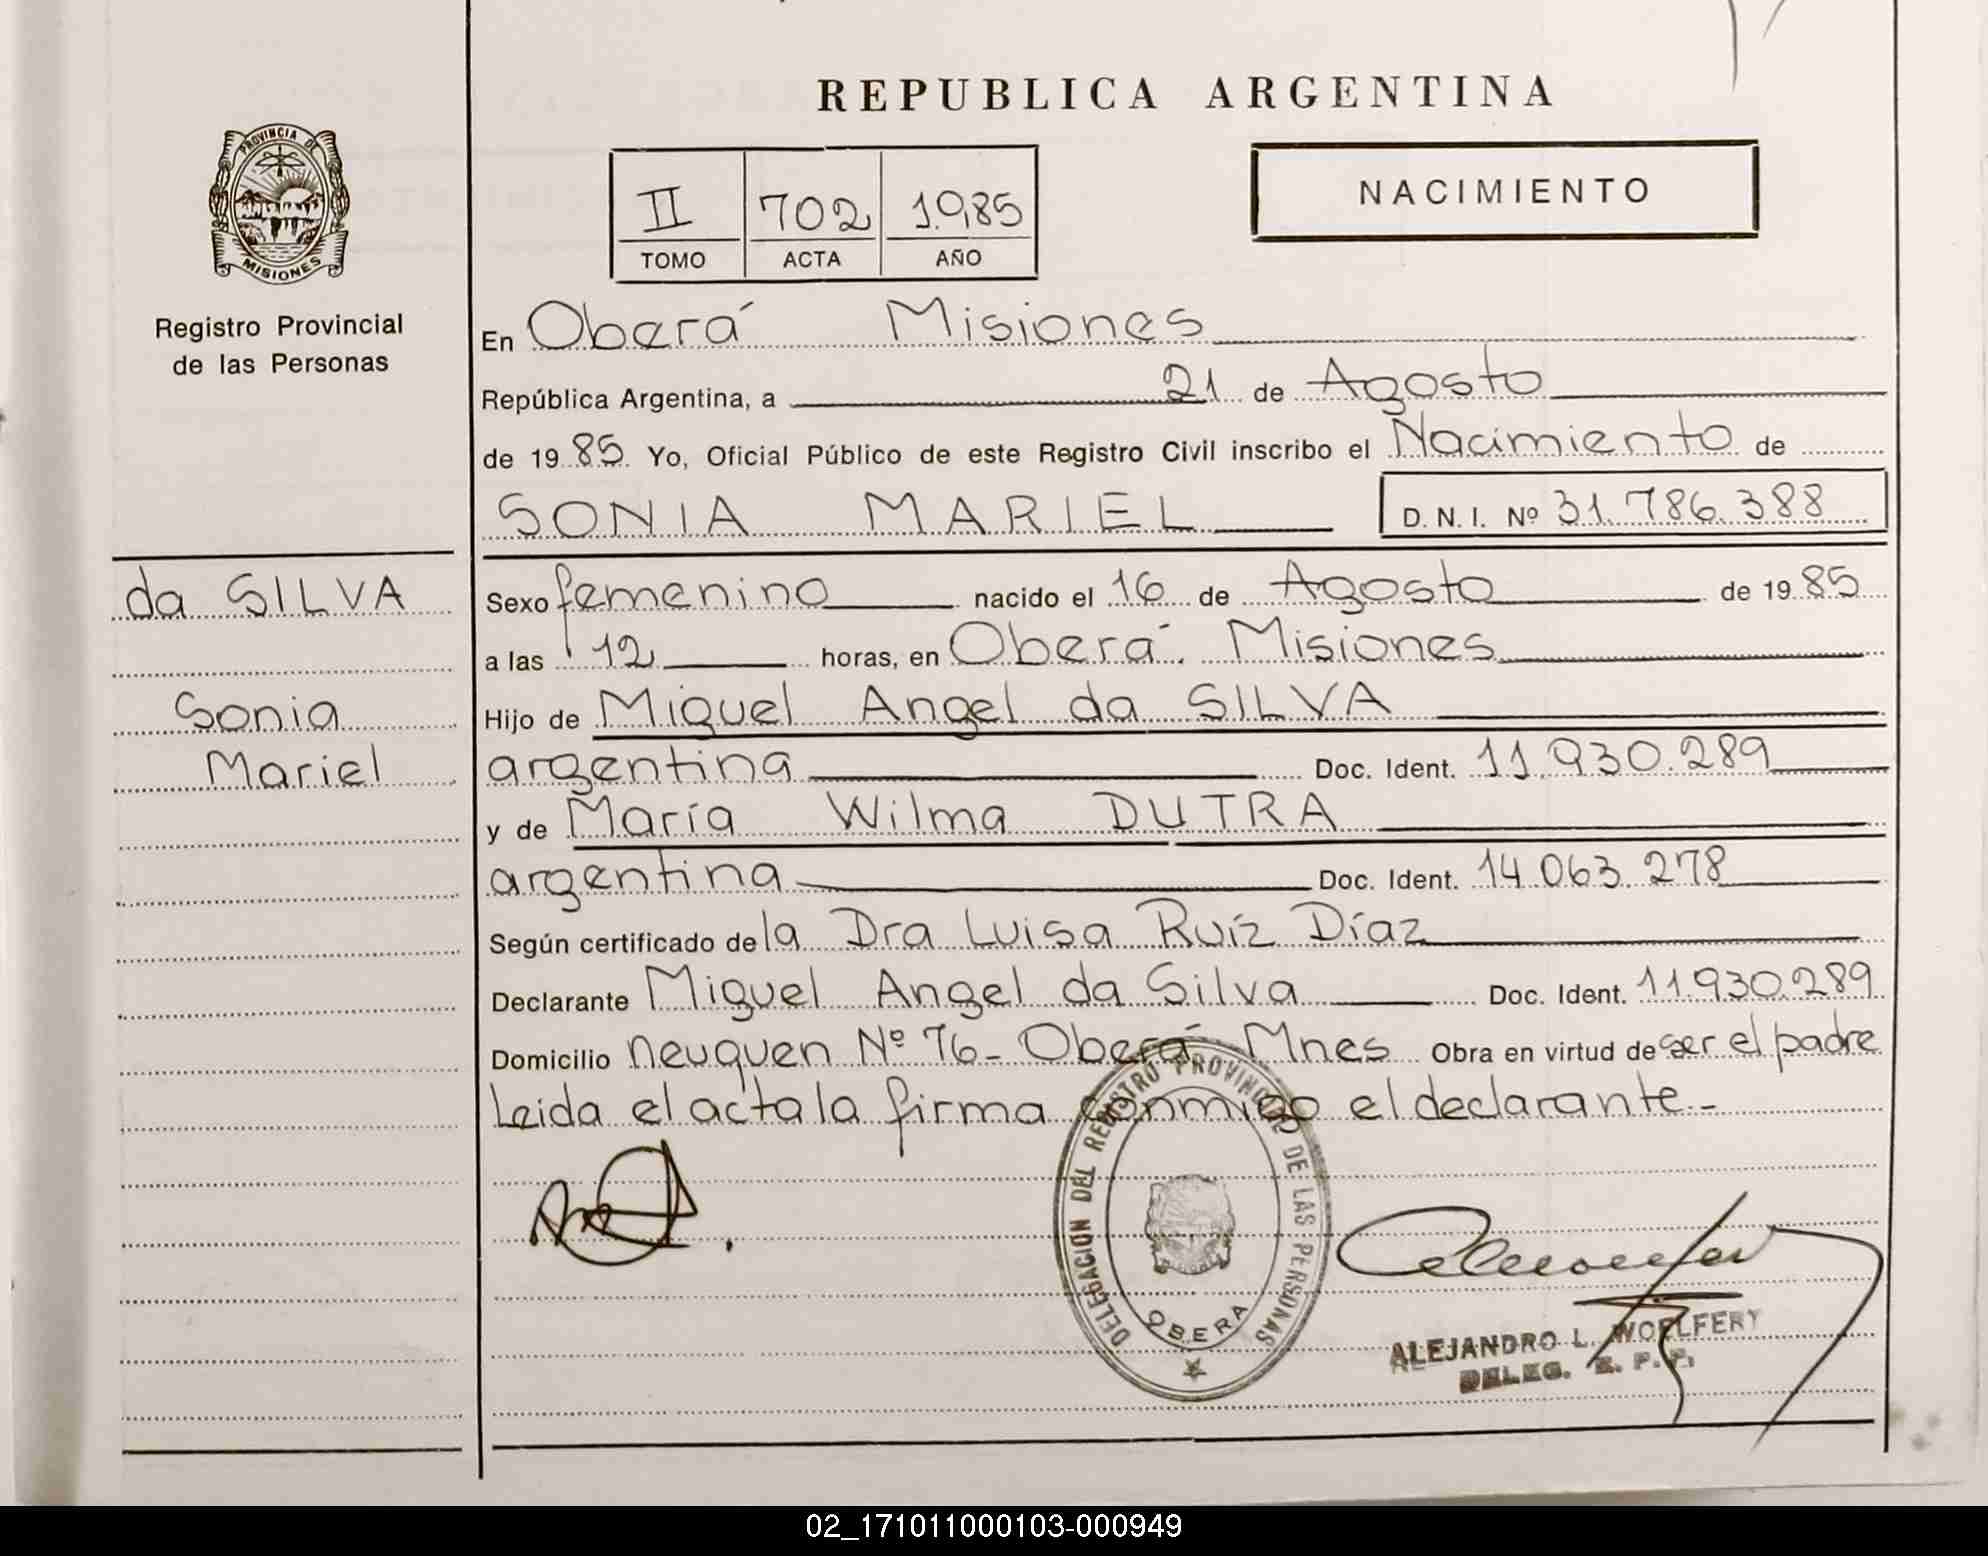 REPUBLICA ARGENTINA
PROVINCIA DE
MISIONES
Registro Provincial
de las Personas
II 702 1985
TOMO ACTA AÑO
NACIMIENTO
En Oberá Misiones
República Argentina, a 21 de Agosto
de 19 85 Yo, Oficial Público de este Registro Civil inscribo el Nacimiento de
SONIA MARIEL D. N. I. Nº 31.786.388
da SILVA
Sonia
Mariel
Sexo femenino nacido el 16 de Agosto de 19 85
a las 12 horas, en Oberá. Misiones
Hijo de Miguel Angel da SILVA
argentina Doc. Ident. 11.930.289
y de María Wilma DUTRA
argentina Doc. Ident. 14.063.278
Según certificado de la Dra Luisa Ruíz Díaz
Declarante Miguel Angel da Silva Doc. Ident. 11.930.289
Domicilio neuquen Nº 76- Oberá Mnes Obra en virtud de ser el padre
Leida el acta la firma conmigo el declarante.-
DELEGACION DEL REGISTRO PROVINCIAL DE LAS PERSONAS
OBERA
ALEJANDRO L. WOELFERY
DELEG.
02_171011000103-000949